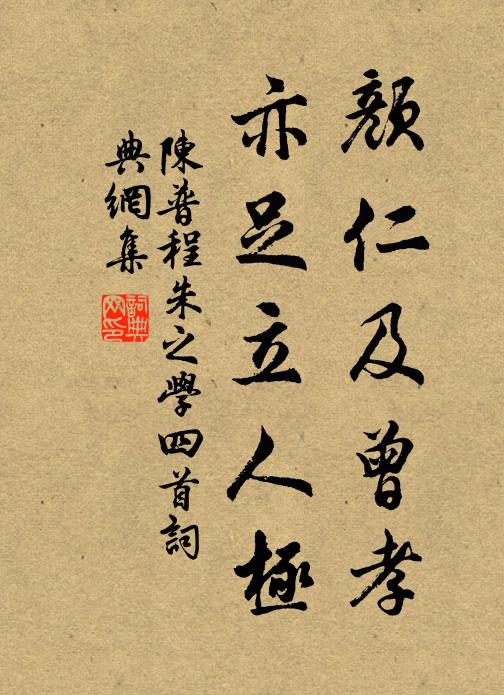 顏仁及曾孝
亦足立人極
陳普程朱之學四首詞
典網集
詞典
网印